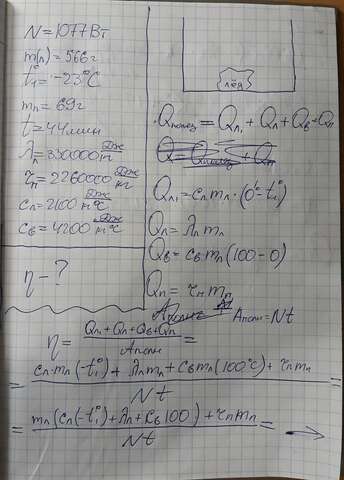 N = 1077 Вт
m(л) = 566 г
t₁° = -23°C
mп = 69 г
t = 44 мин
λл = 330000 Дж/кг
τп = 2260000 Дж/кг
cл = 2100 Дж/кг°C
cв = 4200 Дж/кг°C
η - ?
лёд
Qполез = Qл₁ + Qл + Qв + Qп
Qл₁ = cл mл · (0° - t₁°)
Qл = λл mл
Qв = cв mл (100 - 0)
Qп = τп mп
Aполн = Nt
η = (Qл₁ + Qл + Qв + Qп) / Aполн =
= (cл · mл · (-t₁°) + λл mл + cв mл (100°C) + τп mп) / Nt =
= (mл (cл (-t₁°) + λл + cв 100) + τп mп) / Nt = →